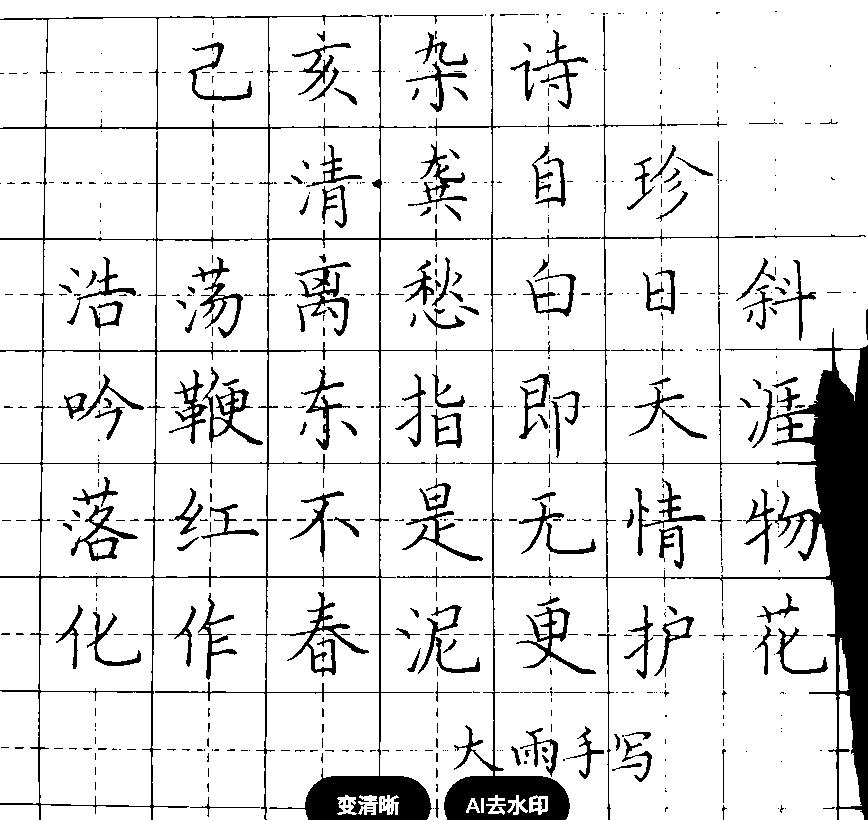 己亥杂诗
清·龚自珍
浩荡离愁白日斜
吟鞭东指即天涯
落红不是无情物
化作春泥更护花
大雨手写
变清晰 AI去水印